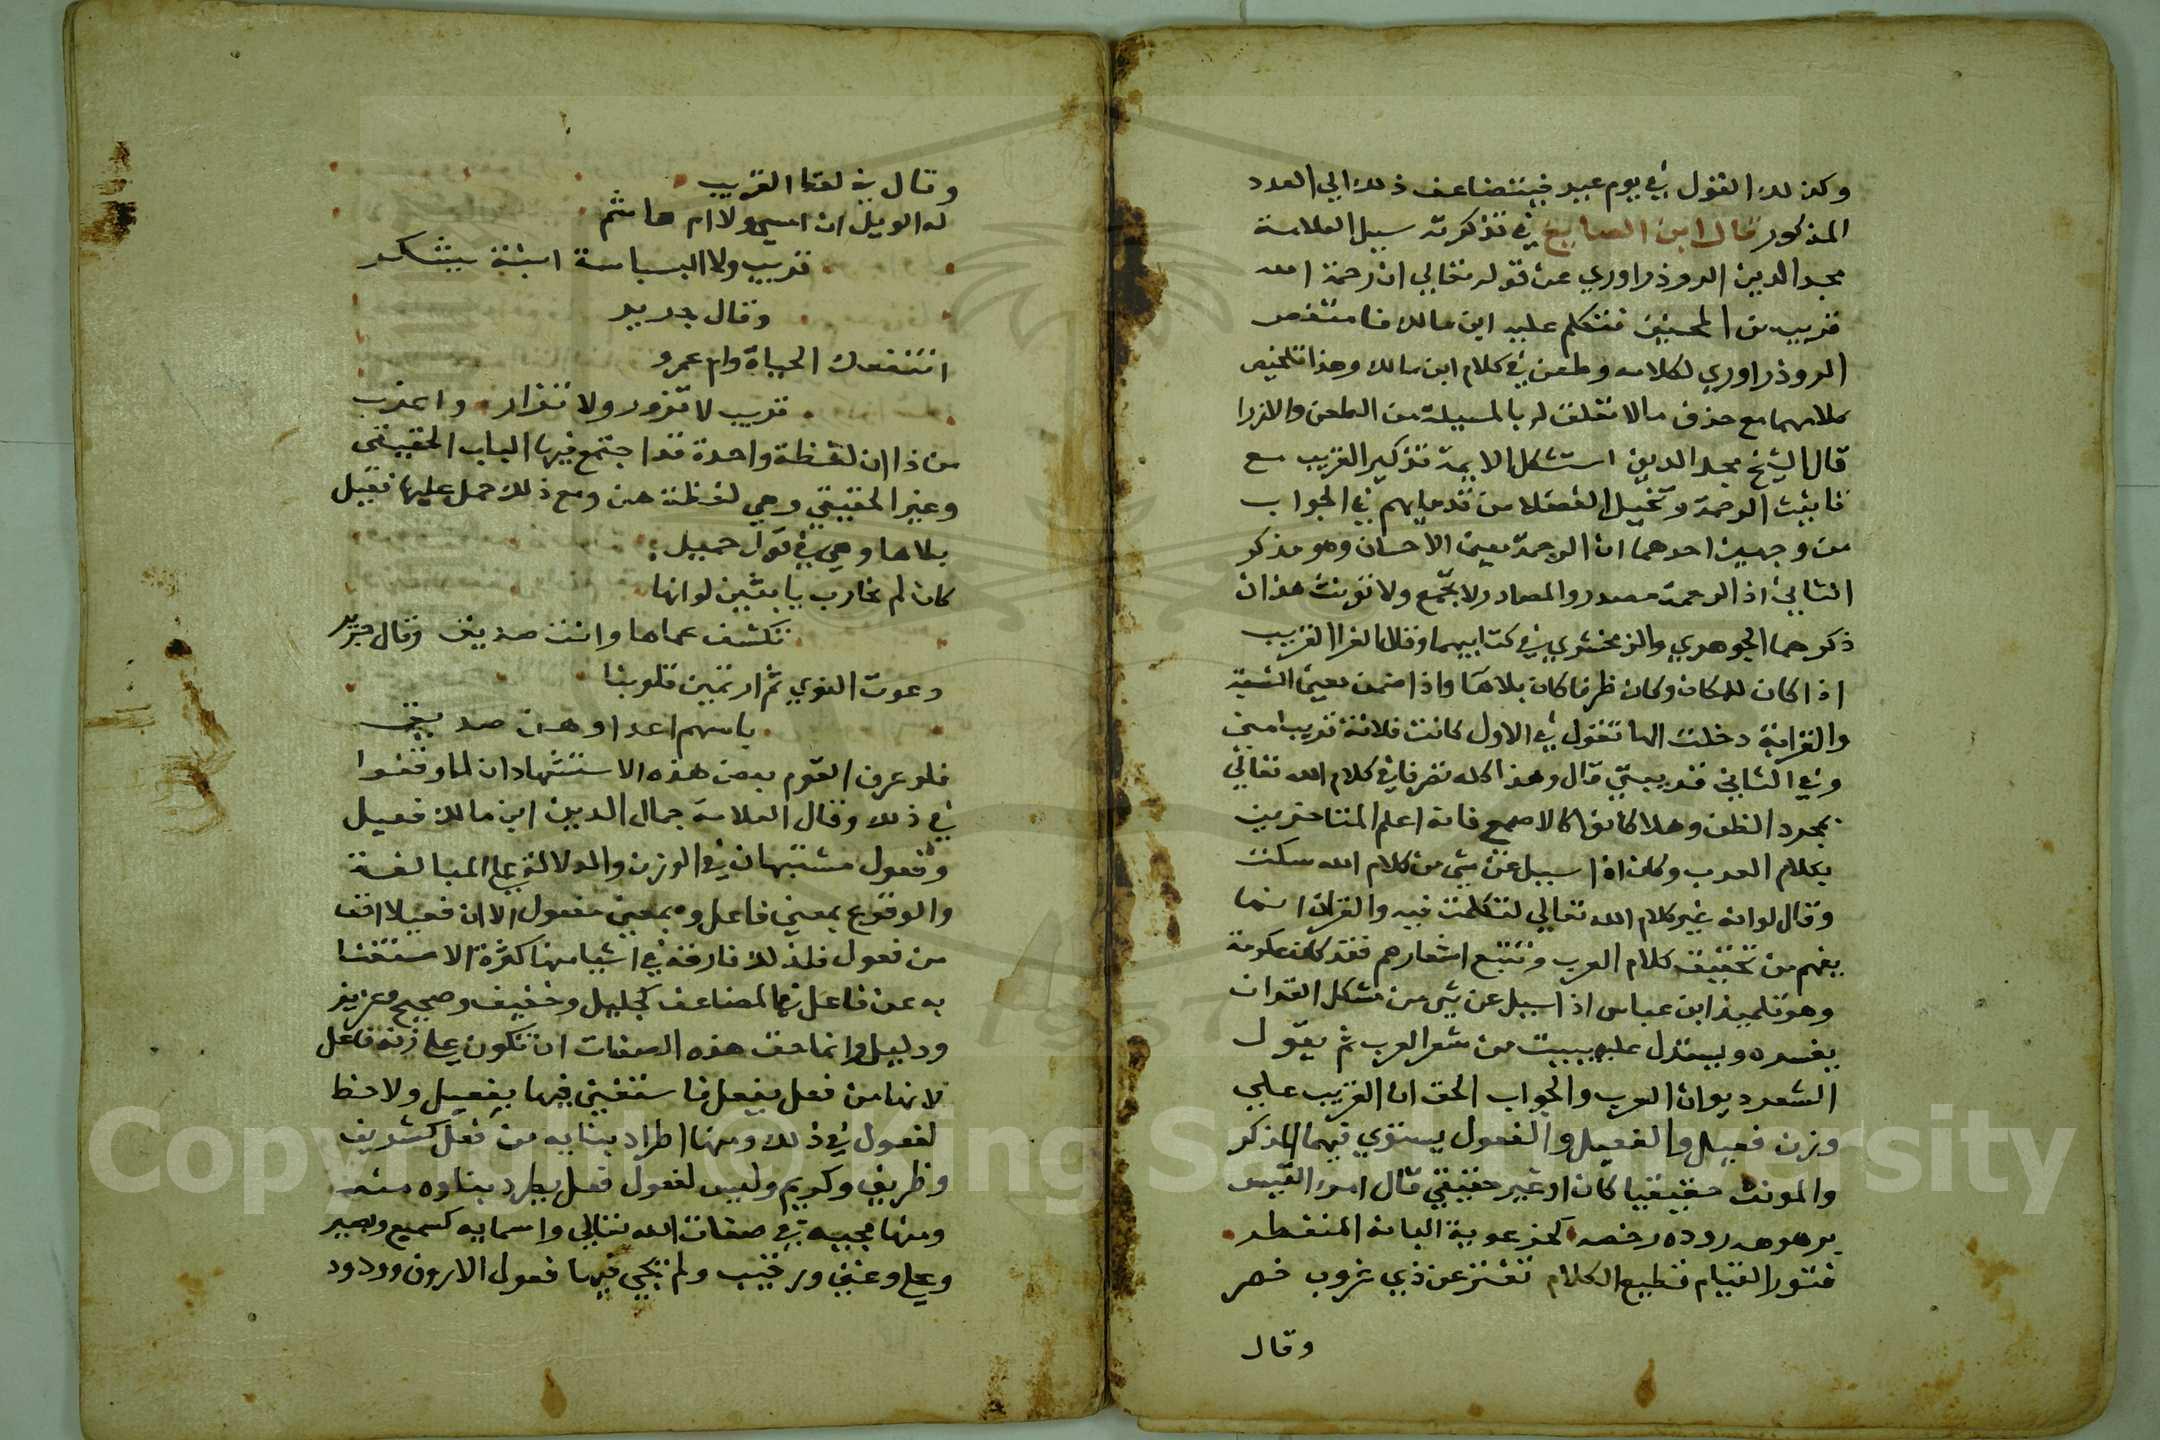 وكذلك القول في يوم عبيد فيتضاعف ذلك الي العدد
المذكور قال ابن الصايغ في تذكرته سبيل العلامة
مجد الدين الروذراوري عن قوله تعالي ان رحمة الله
قريب من المحسنين فتكلم عليه ابن مالك فانتقص
الروذراوري لكلامه وطعن في كلام ابن مالك وهذا تلخيص
كلامهما مع حذف مالا تعلق له بالمسيلة من الطعن والازرا
قال الشيخ مجد الدين استشكل الايمة تذكير القريب مع
تانيث الرحمة وتخيل الفضلا من قدمايهم في الجواب
من وجهين احدهما ان الرحمة بمعني الاحسان وهو مذكر
الثاني اذ الرحمة مصدر والمصادر لا تجمع ولا تونث هذان
ذكرهما الجوهري والزمخشري في كتابيهما وقال الفرا القريب
اذا كان للمكان وكان ظرفا كان بلا ها واذا ضمن معني الشبه
والقرابة دخلت الها تقول في الاول كانت فلانة قريب امني
وفي الثاني قريبتي قال وهذا كله تصرفا في كلام الله تعالي
بمجرد الظن وهلا كانوا كالاصمعي فانه اعلم المتاخرين
بكلام العرب وكان اذا سبيل عن شي من كلام الله سكت
وقال لوانه غير كلام الله تعالي لتكلمت فيه والقران انما
يفهم من تحقيق كلام العرب وتتبع اشعارهم فقد كان عكرمة
وهو تلميذ ابن عباس اذا سبيل عن شي من مشكل القران
يفسره ويستدل عليه ببيت من شعر العرب ثم يقول
الشعر ديوان العرب والجواب الحق ان القريب علي
وزن فعيل والفعيل والفعول يستوي فيهما المذكر
والمونث حقيقيا كان او غير حقيقي قال امرء القيس
برهرهه روده رخصه كخرعوبة البانة المنفطر
فتور القيام قطيع الكلام تفتر عن ذي غروب خصر
وقال
وقال في لفظ القريب
له الويل ان امسي ولا ام هاشم
قريب ولا البسباسة ابنة يشكر
وقال جرير
اتنفعك الحياة وام عمرو
قريب لا تزور ولا تزار واعذب
من ذا ان لفظة واحدة قد اجتمع فيها الباب الحقيقي
وغير الحقيقي وهي لفظة هن ومع ذلك حمل عليها فعيل
بلا ها وهي في قول جميل
كان لم نحارب يا بثين لوانها
تكشف عماها وانت صديق وقال جرير
دعون الهوي ثم ارتمين قلوبنا
باسهم اعدا وهن صديق
فلو عرف القوم بعض هذه الاستشهادات لما وقفوا
في ذلك وقال العلامة جمال الدين ابن مالك فعيل
وفعول مشتبهان في الوزن والدلالة علي المبالغة
والوقوع بمعني فاعل وبمعني مفعول الا ان فعيلا اخف
من فعول فلذلك فارقه في اشيا منها كثرة الاستغنا
به عن فاعل في المضاعف كجليل وخفيف وصحيح وعزيز
ودليل وانما حق هذه الصفات ان تكون علي زنة فاعل
لانها من فعل يفعل فاستغني فيها بفعيل ولا حظ
لفعول في ذلك ومنها اطراد بنايه من فعل كشريف
وظريف وكريم وليس لفعول فعل يطرد بناوه منه
ومنها مجييه في صفات الله تعالي واسمايه كسميع وبصير
وعلي وغني ورقيب ولم يجي فيها فعول الا رووف وودود
Copyright © King Saud University
1957